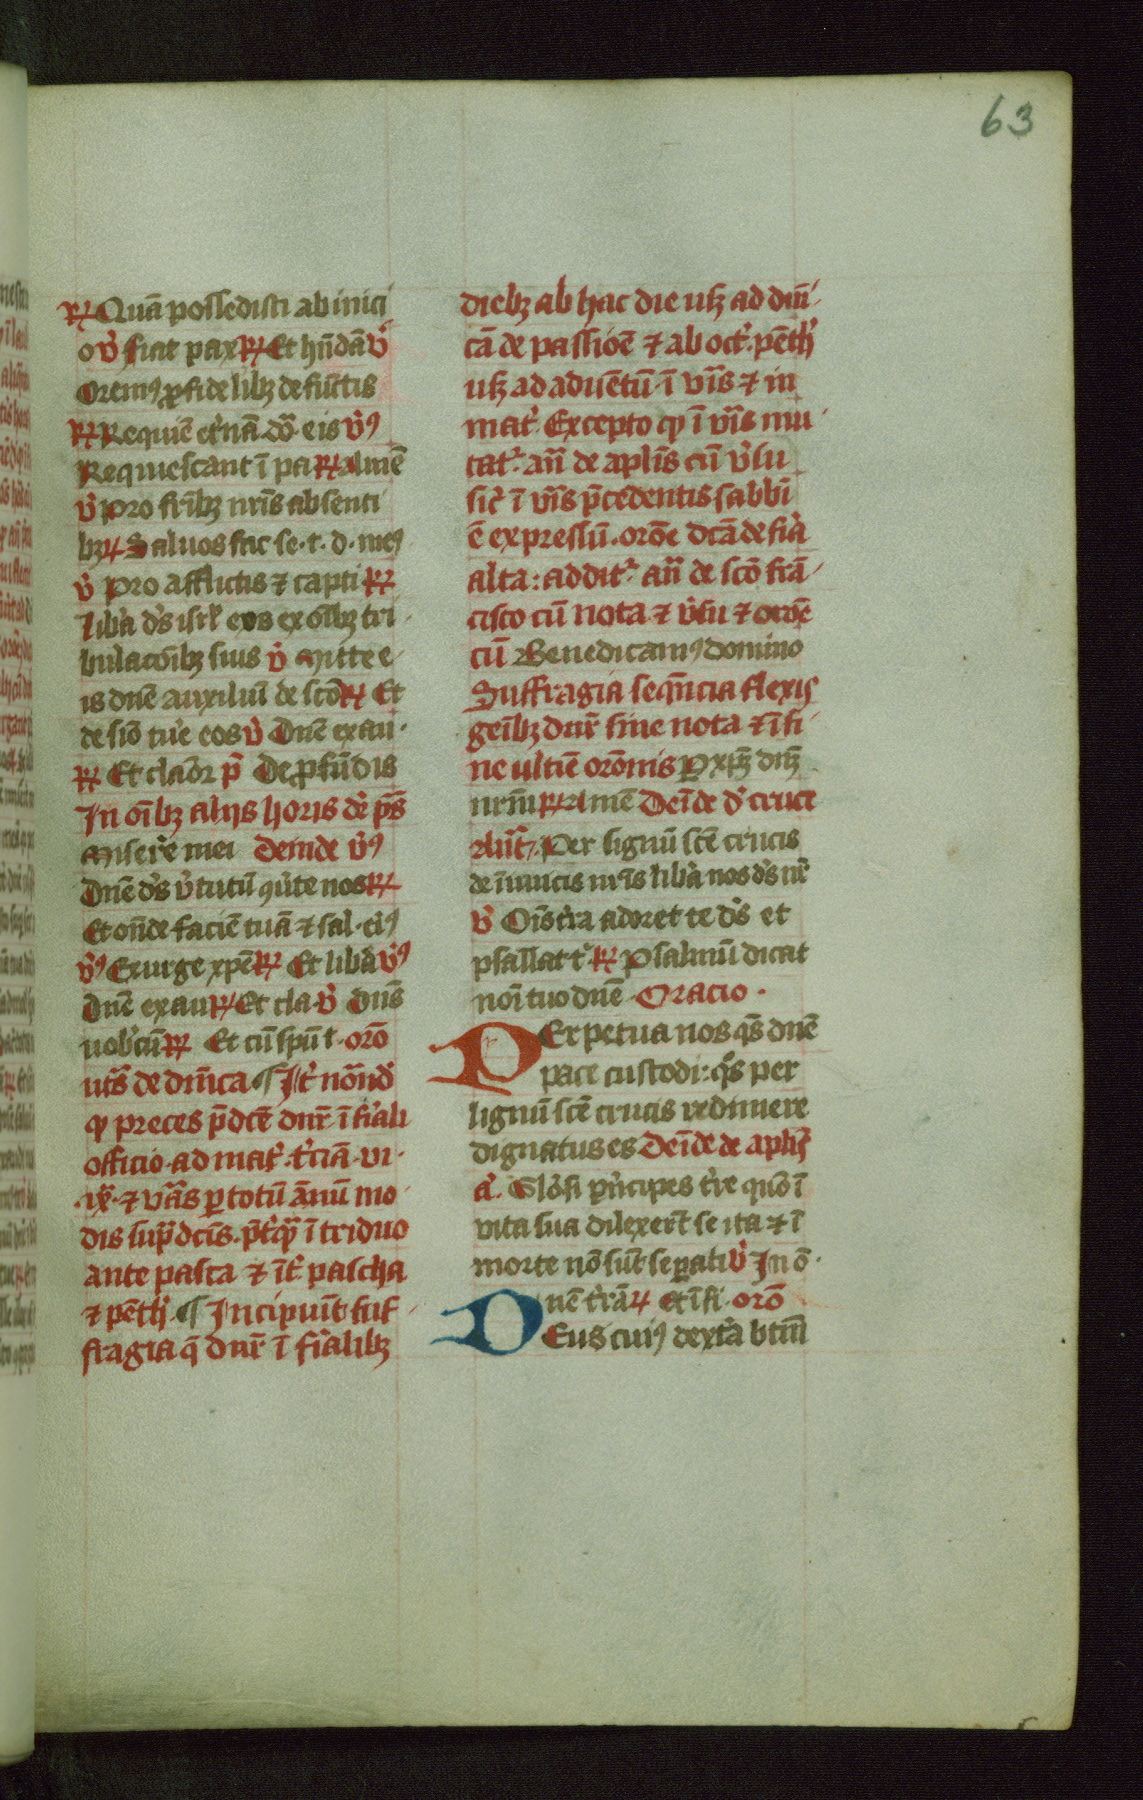 63
℟ Quā possedisti ab inici
o v̾ fiat pax ℟ Et hn̄dā v̾
Oremꝯ ꝓ fidelibꝫ defūctis
℟ Requiē et̾nā do͞ eis v̾ꝯ
Requiescant ī pa ℟ Amē
v̾ Pro fr̄ibꝫ nr̄is absenti
bꝫ ℟ Saluos fac se· t· d· meꝯ
v̾ Pro afflictis ⁊ capti ℟
Lib̾a d̄s isrl̾ eos ex oī̄bꝫ tri
bulacōibꝫ suis v̾ Mitte e
is dn̄e auxiliū de scō ℟ Et
de siō tue̾ eos v̾ Dn̄e exau·
℟ Et clāor p̄ De ꝓfūdis
In oī̄bꝫ alijs horis dr̄ p̄s
Miser̄e mei Deinde v̾ꝯ
Dn̄e d̄s v̾tutū 9u̾te nos ℟
Et on̄de faciē tuā ⁊ sal· ei̾ꝯ
v̾ꝯ Exurge xp̄e ℟ Et lib̾a v̾ꝯ
Dn̄e exau ℟ Et cla· v̾ Dn̄s
uob̾cū ℟ Et cū spū t· oro͞
ut͛s de dn̄ica ¶ It̾ nōnd̾
ꝙ preces p̄dc̄e dnr̄ ī fi̾ali
officio· ad mat̾· t̾ciā· vi·
·ix̾· ⁊ vr̄as ꝑ totū ānū mo
dis sup̄dc̄is· p̄t̾qꝫ ī triduo
ante pasca ⁊ īt̾ pascha
⁊ pēth̾· ¶ Incipiūt suf
fragia q̄ dnr̄ ī fi̾alibꝫ
diebꝫ ab hac die usꝫ ad dn̄i
cā de passiōe ⁊ ab oct̾· pēth̾
usꝫ ad aduētū ī vr̄is ⁊ in
mat̾ Excepto ꝙ ī vr̄is mu
tat̾· an̄ de apl̄is cū v̾su
sic̾ ī vr̄is p̄cedentis sabb̄i
ē expressū· oro͞e dc̄ā de fi̾a
alta: addit̾ an̄ de scō frā
cisco cū nota ⁊ v̾su ⁊ oro͞e
cū Benedicamꝯ domino
Suffragia seqn̄cia flexis
gen̄ibꝫ dnr̄ sine nota ⁊ ī fi
ne ultīe oro͞nis P xp̄ꝫ dn̄ꝫ
nrm̄ ℟ Amē Deīde d̾ cruce
An̄t· Per signū sc̄e crucis
de īimicis nr̄is lib̾a nos d̄s nr̄
v̾ Oīs t̾ra adoret te d̄s et
psallat t̾ ℟ Psalmū dicat
noī tuo dn̄e· Oracio·
PErpetua nos q̄s dn̄e
pace custodi: q̊s per
lignū sc̄e crucis redimere
dignatus es Deīde de apl̄is
a̾· Glo̾si p̾ncipes t̾re quō ī
vita sua dilexer̄t se ita ⁊ ī
morte nō sūt seꝑati v̾ In ō
nē t̾rā ℟ et ī fi· oro͞
DEus cuiꝯ dext̾a btm̄